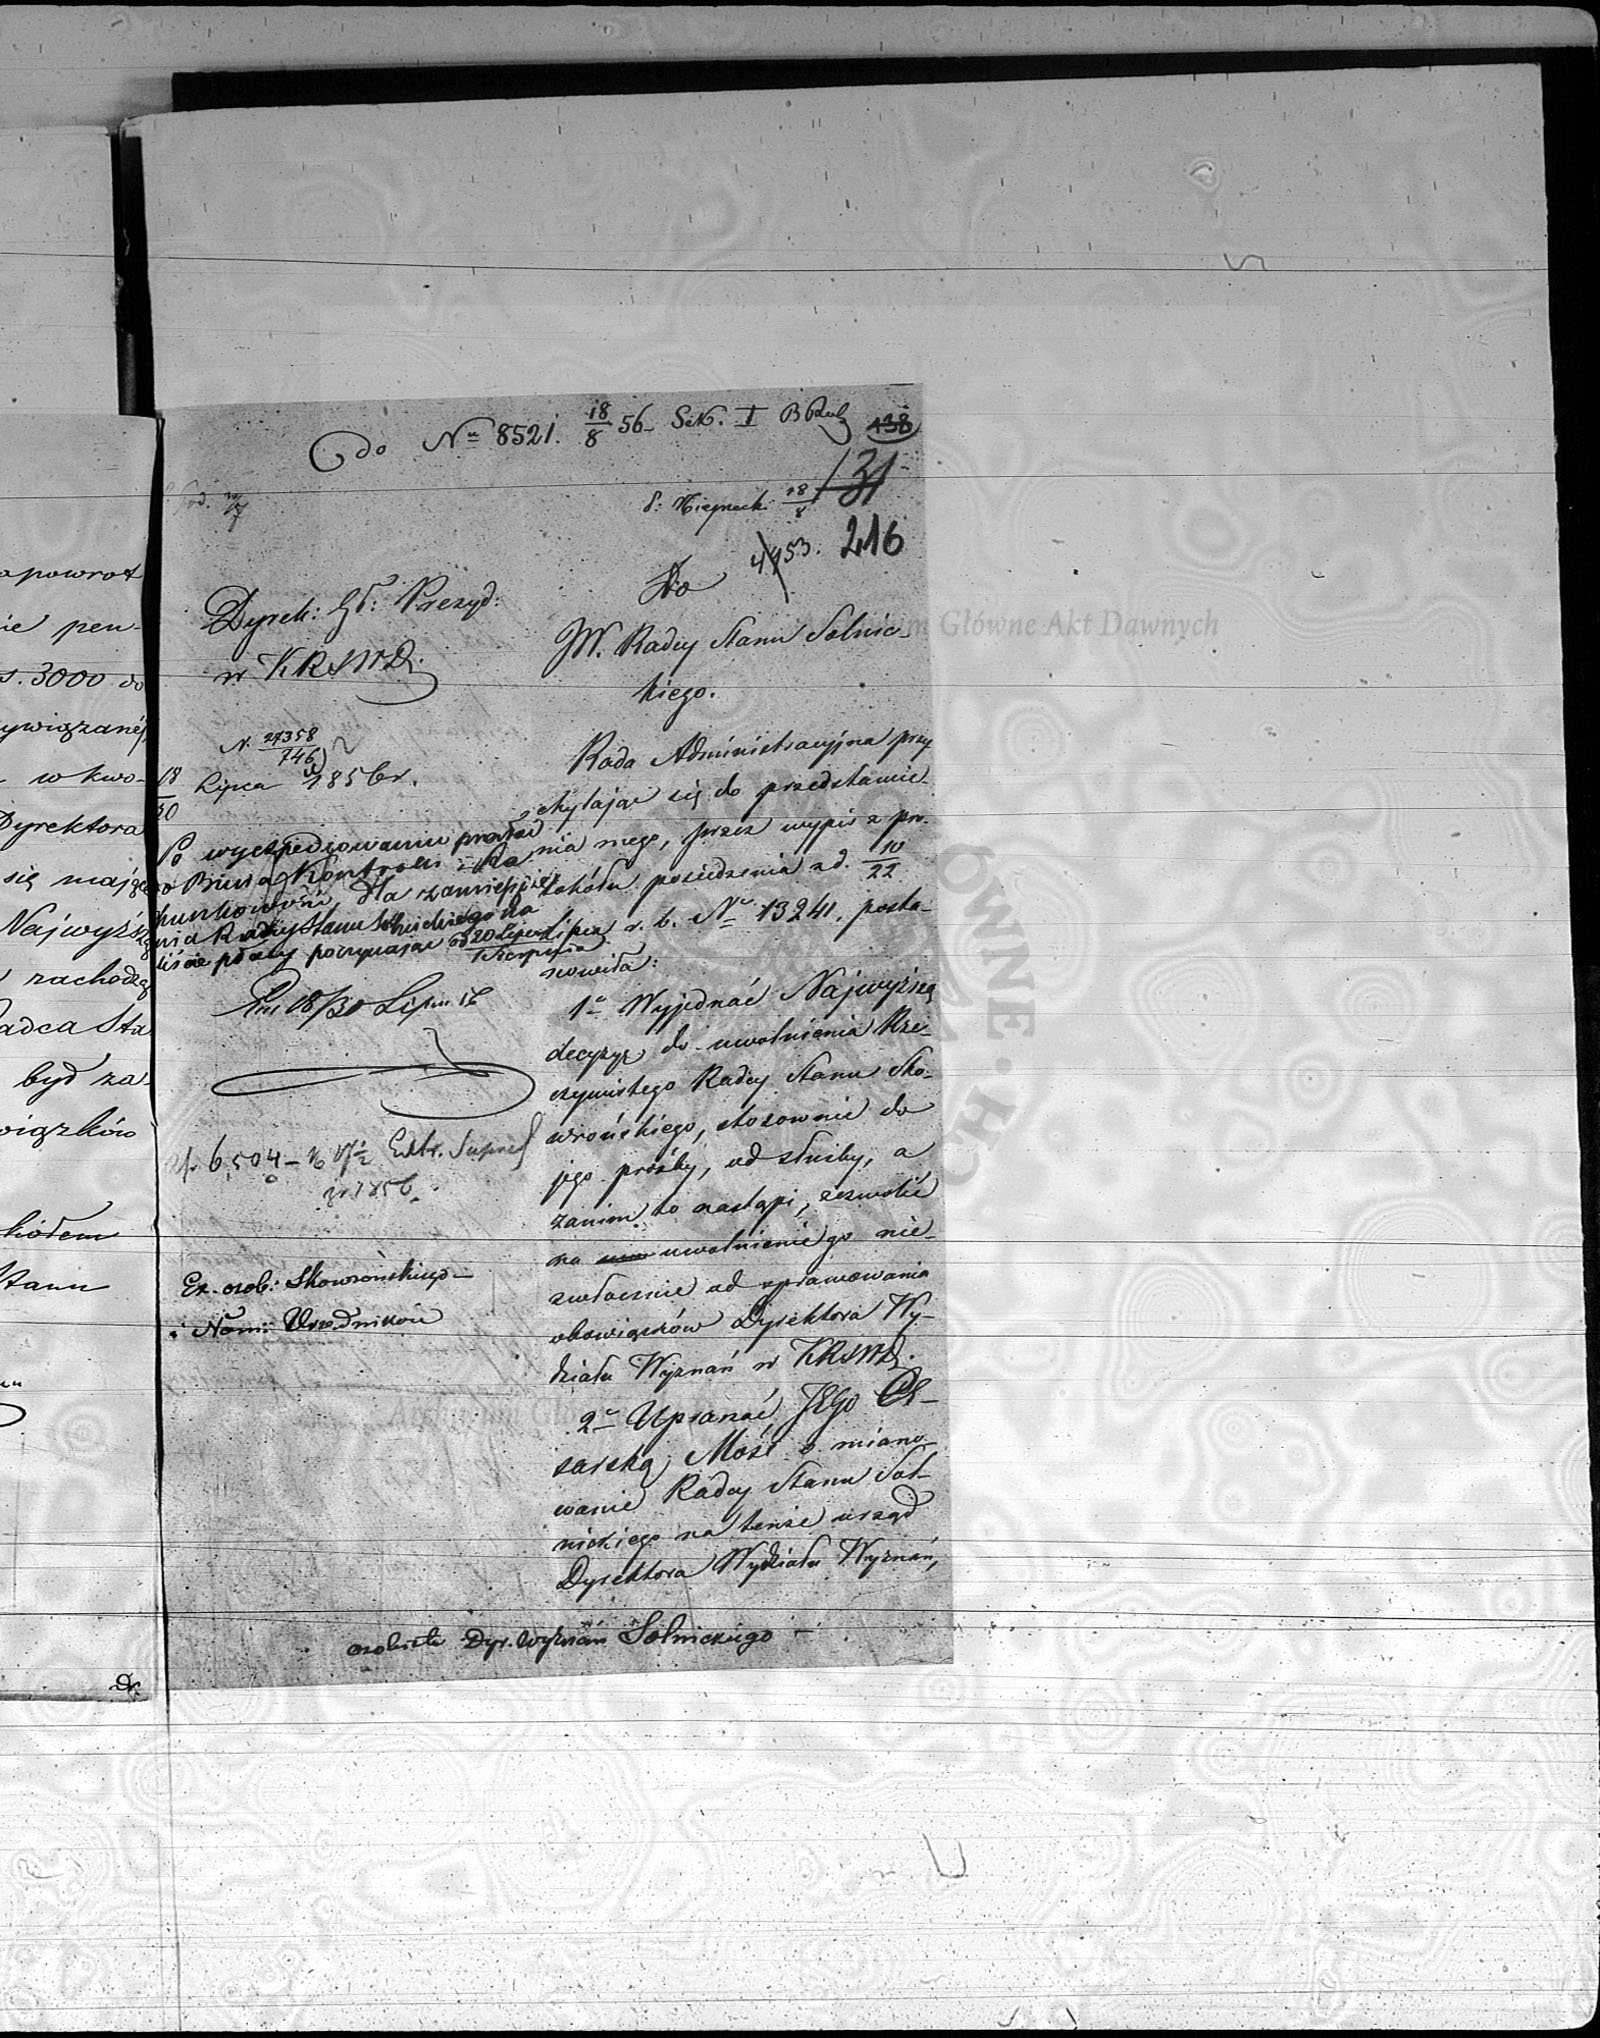 do Nro 8521. 18/8 56 Sek. I
138
131
18/8
216
4153.
Dyrek: Gł: Prezyd:
w KRSWD.
N. 27358/746
18/30 Lipca 1856 r.
Po wyexpedjowaniu przesłać
do Biura Kontroli i Ra
chunkowości, dla zamieszcze
nia Radcy Stanu Solnickiego na
liście płacy poczynając od 20 Lipca/1 Sierpnia
Dn 18/30 Lipca 56
6,504
w 1856
Ex. osob: Skowrońskiego
i Nom: Urzędników
Do
JW. Radcy Stanu Solnic-
kiego.
Rada Administracyjna przy
chylając się do przedstawie-
nia mego, przez wypis z pro-
tokółu posiedzenia z d. 10/22
Lipca r. b. Nro 13241, posta-
nowiła:
1o Wyjednać Najwyższą
decyzyę do uwolnienia Rze-
czywistego Radcy Stanu Sko-
wrońskiego, stosownie do
jego prośby, od służby, a
zanim to nastąpi, zezwolić
na uwolnienie go nie-
zwłocznie od sprawowania
obowiązków Dyrektora Wy-
działu Wyznań w KRSWD.
2o Upraszać JEGO CE-
sarską Mość o miano
wanie Radcy Stanu Sol-
nickiego na tenże urząd
Dyrektora Wydziału Wyznań,
osobiste Dyr. Wyznań Solnickiego
apowrot
ie pen-
s. 3000 do
ywiązanéj
w kwo-
Dyrektora
się mając
Najwyższ
zachodzą
adca Sta
być za-
wiązków
kółem
Stanu
Dr.
Archiwum Główne Akt Dawnych